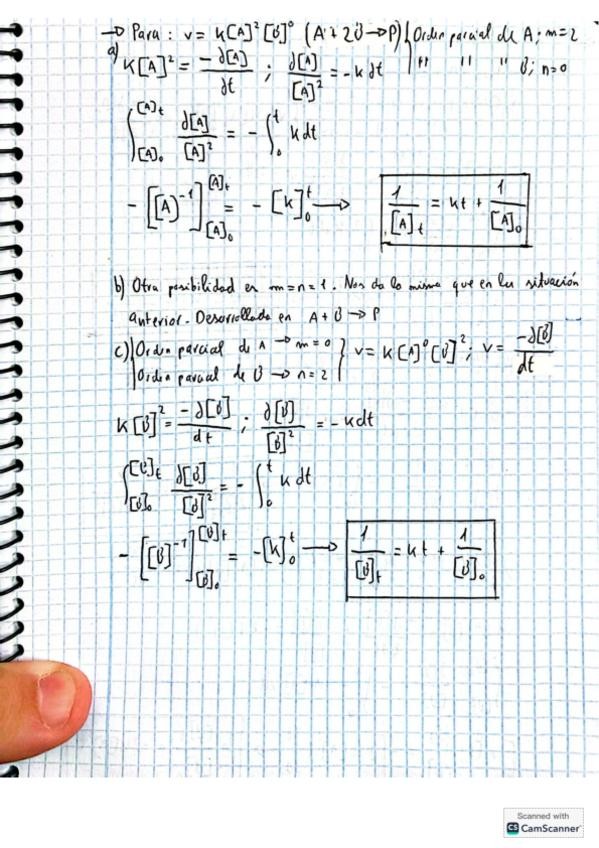 → Para: v = k[A]² [B]⁰ (A + 2B → P) { Orden parcial de A; m = 2
" " " B; n = 0
a) k[A]² = -∂[A]/∂t ; ∂[A]/[A]² = -k dt
∫_{[A]₀}^{[A]t} ∂[A]/[A]² = - ∫₀ᵗ k dt
- [[A]⁻¹]_{[A]₀}^{[A]t} = - [k]₀ᵗ → 1/[A]t = kt + 1/[A]₀
b) Otra posibilidad es m = n = 1. Nos da lo mismo que en la situación
anterior. Desarrollada en A + B → P
c) { Orden parcial de A → m = 0
Orden parcial de B → n = 2 } v = k[A]⁰[B]²; v = -∂[B]/dt
k[B]² = -∂[B]/dt ; ∂[B]/[B]² = -k dt
∫_{[B]₀}^{[B]t} ∂[B]/[B]² = - ∫₀ᵗ k dt
- [[B]⁻¹]_{[B]₀}^{[B]t} = -[k]₀ᵗ → 1/[B]t = kt + 1/[B]₀
Scanned with
CS CamScanner